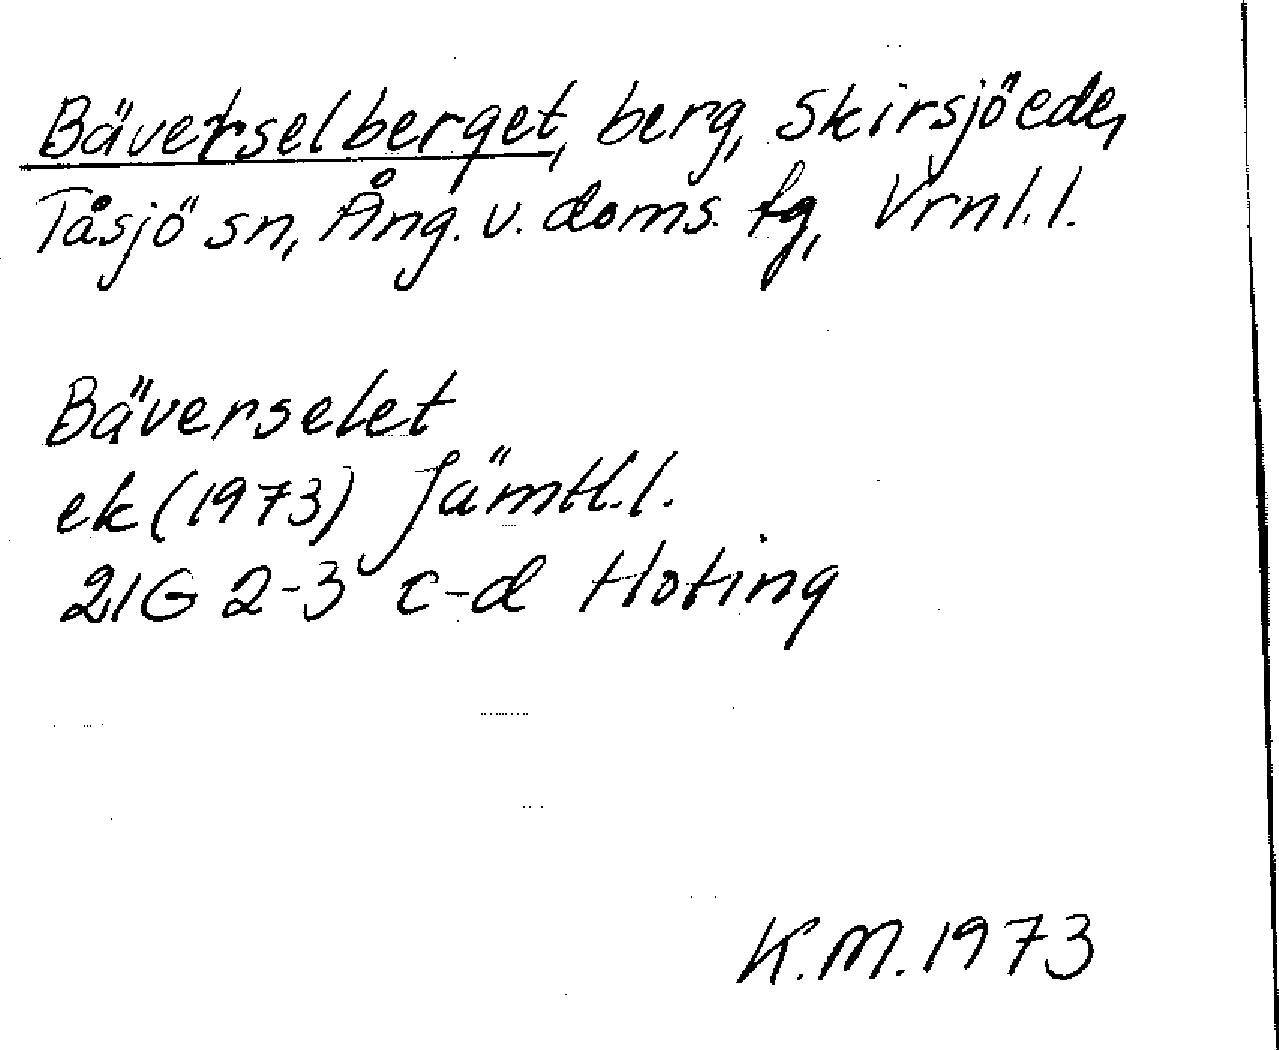 Bäverselberget, berg, Skirsjöede,
Tåsjö sn, Ång. v. doms. fg, Vrnl. l.
Bäverselet
ek (1973) Jämtl. l.
21G 2-3 c-d Hoting
K.M. 1973